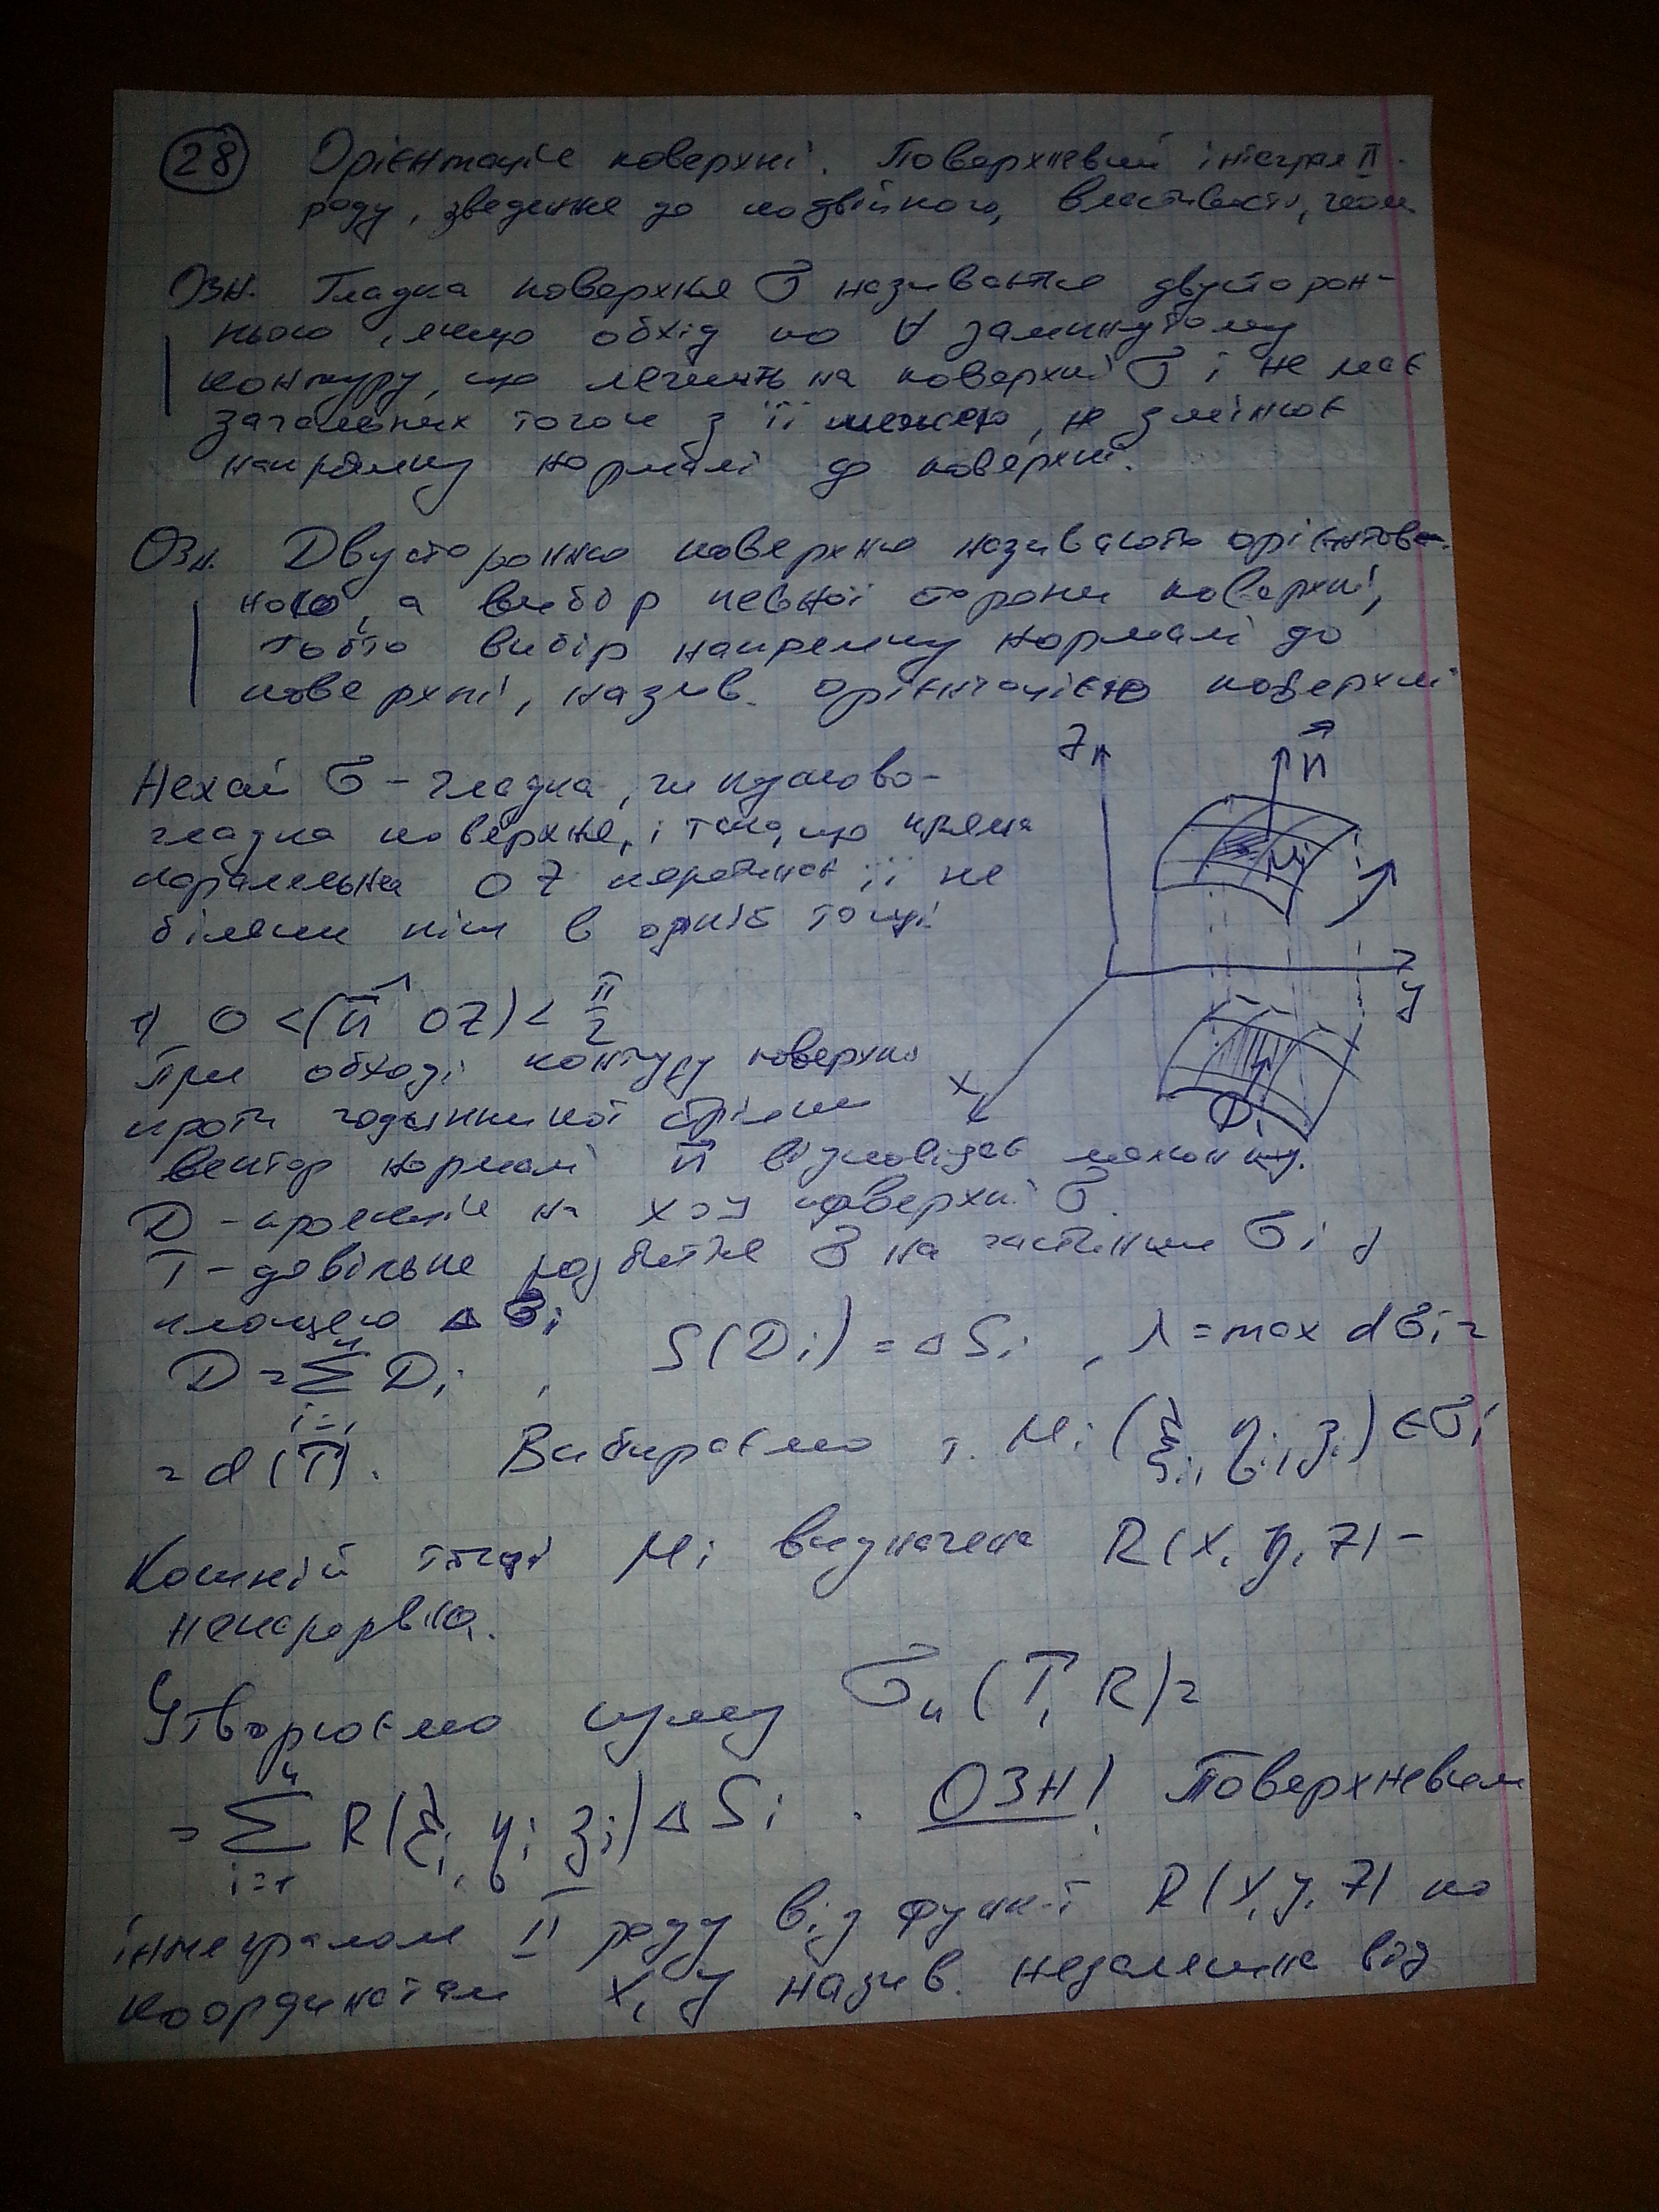 28 Орієнтація поверхні. Поверхневий інтеграл II
роду, зведення до подвійного, властивості, геом
Озн. Гладка поверхня σ називається двусторон-
ньою, якщо обхід по ∀ замкнутому
контуру, що лежить на поверхні σ і не має
загальних точок з її межею, не змінює
напрямку нормалі до поверхні.
Озн. Двусторонню поверхню називають орієнтова-
ною, а вибір певної сторони поверхні,
тобто вибір напрямку нормалі до
поверхні, назив. орієнтацією поверхні
Нехай σ – гладка, чи кусково-
гладка поверхня, і така, що пряма
паралельна OZ перетинає її не
більше ніж в одній точці
z
n
Mi
y
x
Di
1) 0 < (n^ OZ) < π/2
При обході контуру поверхні
проти годинникої стрілки
вектор нормалі n відповідає
D – проекція на xoy поверхні σ.
T – довільне розбиття σ на частинки σi з
площею Δσi
D = Σ(i=1, n) Di, S(Di) = ΔSi, λ = max dσi =
= d(T). Вибираємо т. Mi(ξi, ηi, zi) ∈ σi
Кожній точці Mi визначена R(x, y, z) –
неперервна.
Утворюємо суму σn(T, R) =
= Σ(i=1, n) R(ξi, ηi, zi) ΔSi. ОЗН! Поверхневим
інтегралом II роду від функ-ї R(x, y, z) по
координатам x, y назив. незалежне від